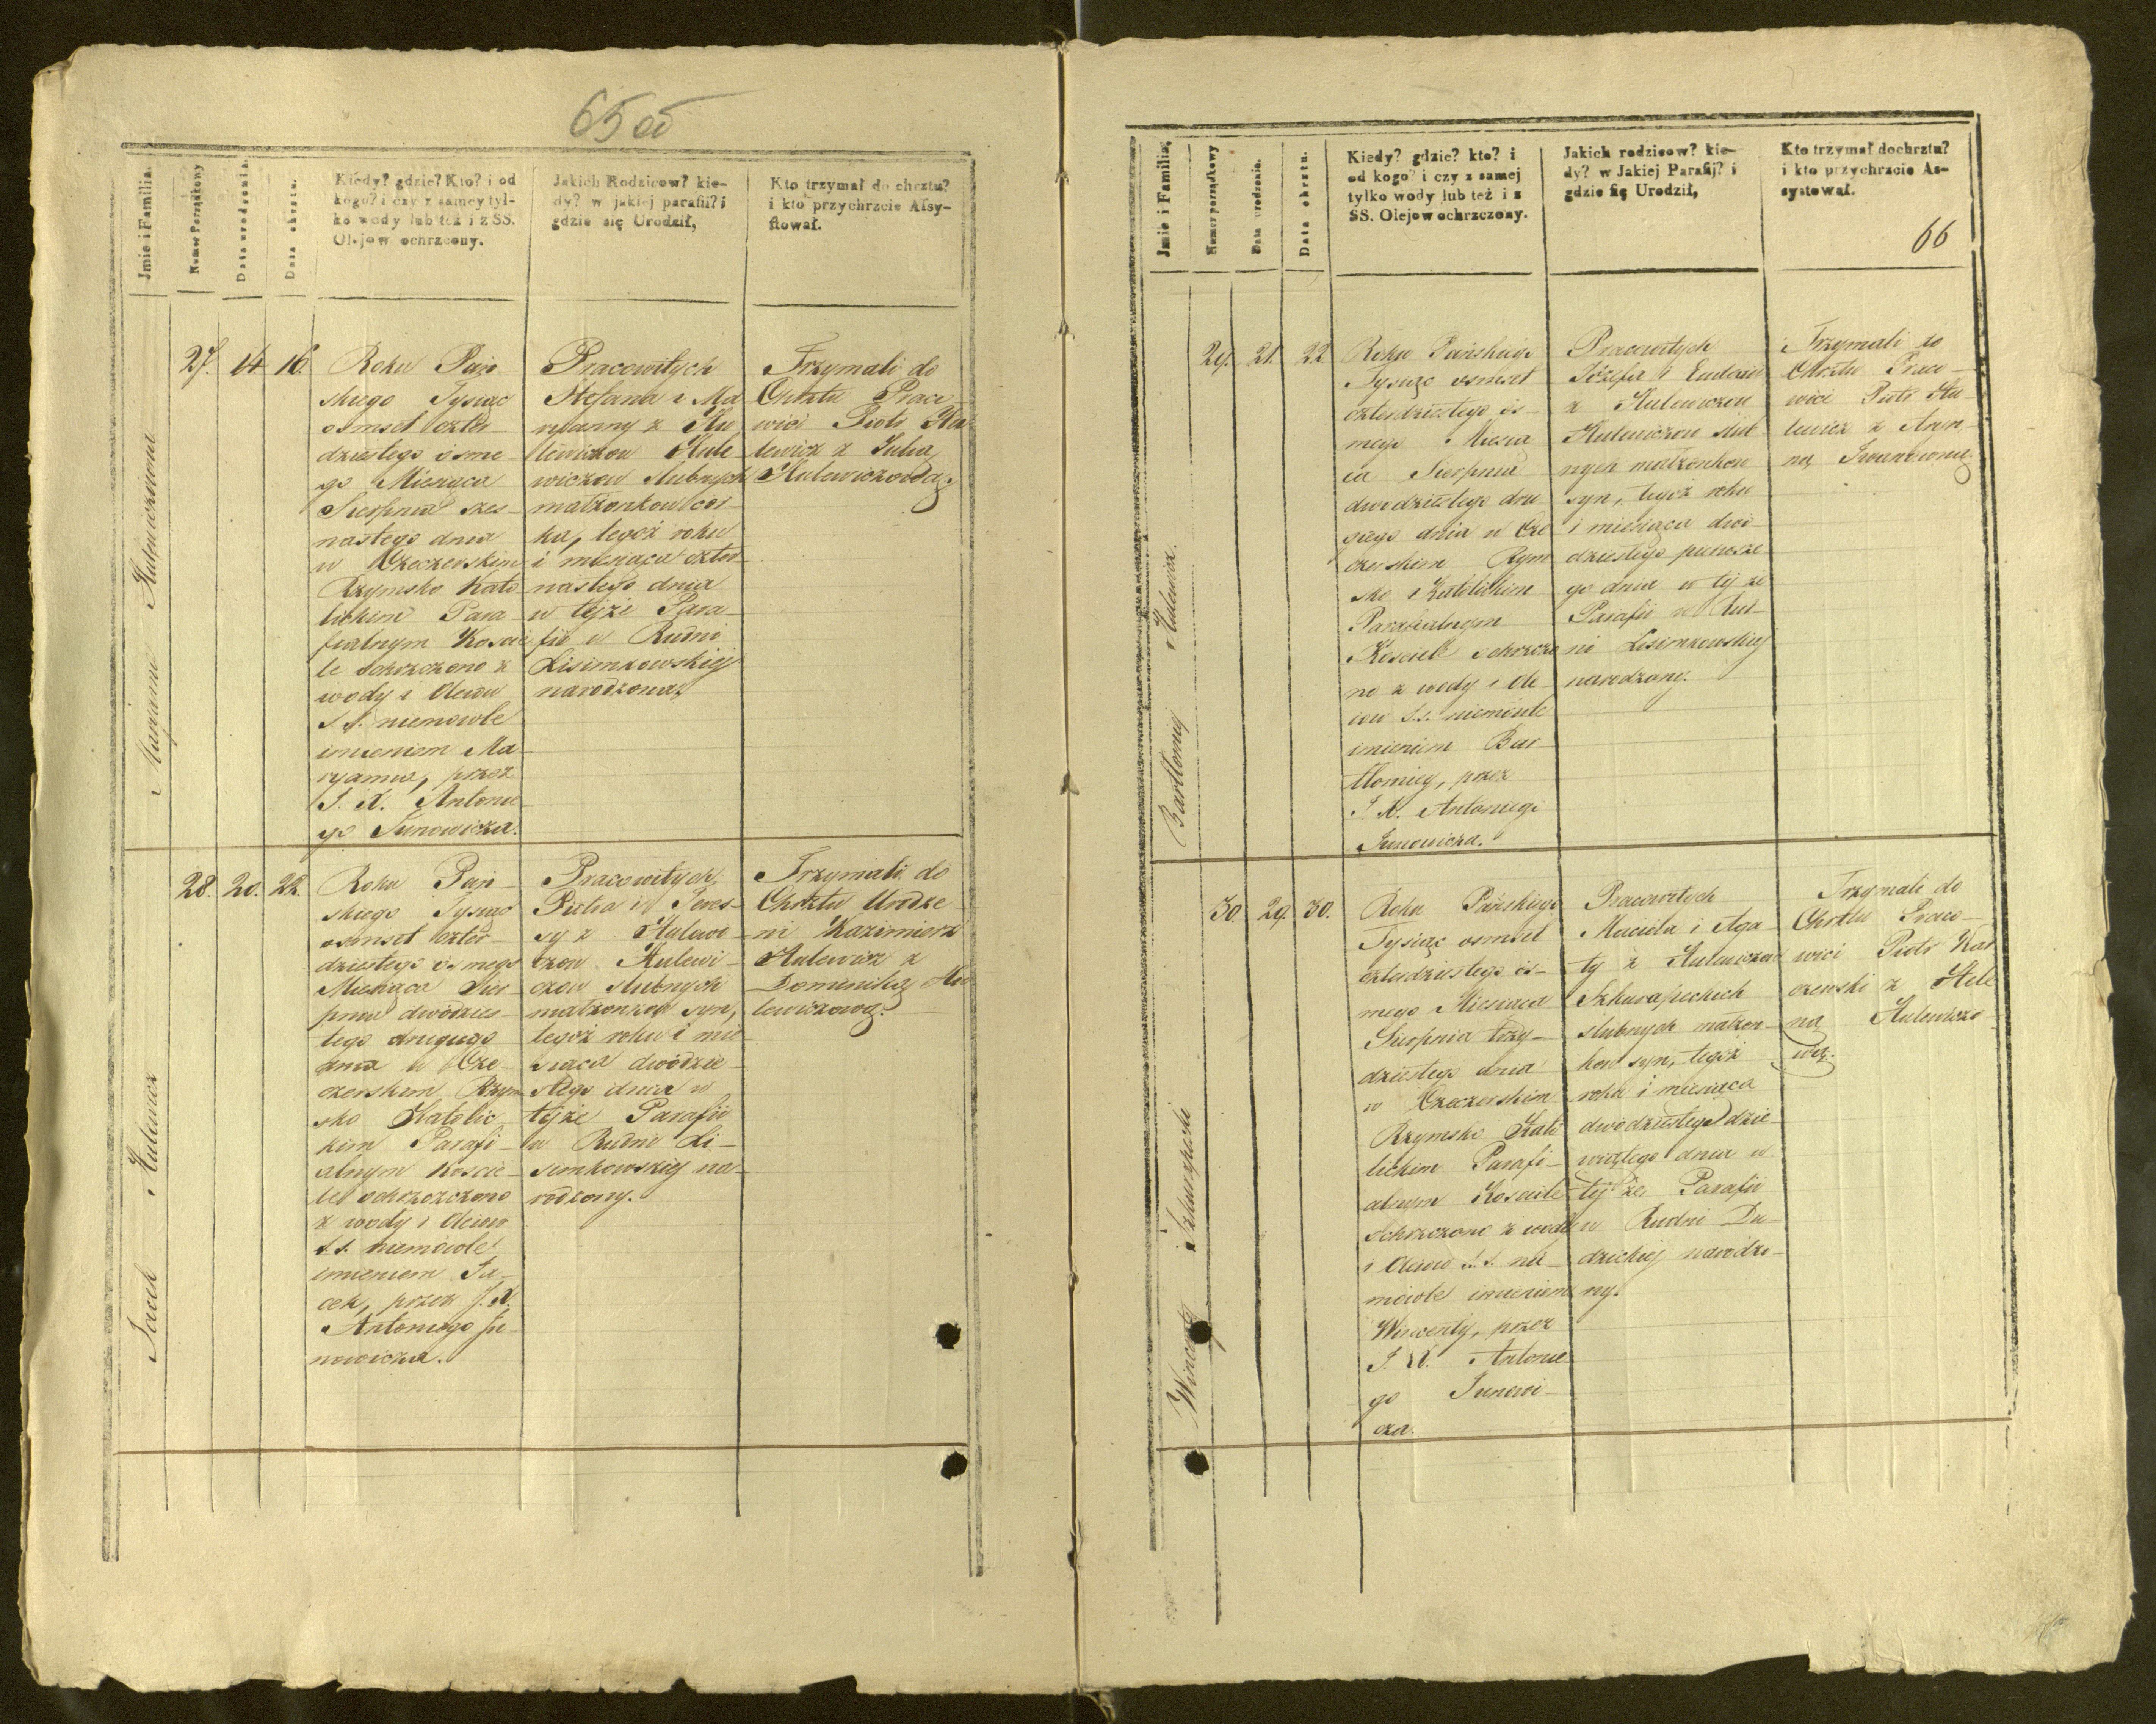 65 об
Jmie i Familia.
Numer Porządkowy
Data urodzenia.
Data chrztu.
Kiedy? gdzie? Kto? i od
kogo? i czy z samey tyl-
ko wody lub też i z SS.
Olejow ochrzcony.
Jakich Rodzicow? kie-
dy? w jakiej parafii? i
gdzie się Urodził,
Kto trzymał do chrztu?
i kto przychrzcie Assy-
stował.
Maryanna Kulewiczowna
27. 14 16.
Roku Pań
skiego Tysiąc
osmset czter-
dziestego ósme
go Miesiąca
Sierpnia szes-
nastego dnia
w Czeczerskim
Rzymsko Kato
lickim Para-
fialnym Koscie
le ochrzczono z
wody i Oleiow
S.S. niemowle
imieniem Ma-
ryanna, przez
J. X. Antonie-
go Junowicza.
Pracowitych
Stefana i Ma
ryanny z Ku
lewiczow Kule
wiczow slubnych
małżonkow cor-
ka, tegoż roku
i miesiąca czter-
nastego dnia
w tejże Para-
fii w Rudni
Lisimkowskiej
narodzona.
Trzymali do
Chrztu Praco-
wici Piotr Ku
lewicz z Julią
Kulewiczową.
Jacek Kulewicz
28. 20. 22.
Roku Pań-
skiego Tysiąc
osmset czter-
dziestego ósmego
Miesiąca Sier-
pnia dwódzies-
tego drugiego
dnia w Cze-
czerskim Rzym
sko Katolic-
kim Parafi-
alnym Koscie-
le ochrzczono
z wody i Oleiow
S.S. niemowle
imieniem Ja-
cek, przez J. X.
Antoniego Ju-
nowicza.
Pracowitych
Piotra i Teres-
sy z Kulewi-
czow Kulewi-
czow slubnych
małżonkow syn,
tegoż roku i mie
siąca dwódzie-
stego dnia w
tejże Parafii
w Rudni Li-
simkowskiej na-
rodzony.
Trzymali do
Chrztu Urodze
ni Kazimierz
Kulewicz z
Dominiką Ku
lewiczową.
Jmie i Familia.
Numer porządkowy
Data urodzenia.
Data chrztu.
Kiedy? gdzie? kto? i
od kogo? i czy z samej
tylko wody lub też i z
SS. Olejow ochrzczony.
Jakich rodzicow? kie-
dy? w Jakiej Parafij? i
gdzie się Urodził,
Kto trzymał dochrztu?
i kto przychrzcie As-
systował.
66
Bartłomiej Kulewicz.
29. 21. 22.
Roku Pańskiego
Tysiąc osmset
czterdziestego ós-
mego Miesią
ca Sierpnia
dwodziestego dru-
giego dnia w Cze
czerskim Rzym
sko Katolickim
Parafialnym
Kosciele ochrzczo
no z wody i Ole-
iow S.S. niemowle
imieniem Bar-
tłomiey, przez
J. X. Antoniego
Junowicza.
Pracowitych
Józefa i Eudoxii
z Kulewiczow
Kulewiczow slub
nych małżonkow
syn, tegoż roku
i miesiąca dwó-
dziestego pierwsze
go dnia w tej że
Parafii w Rud-
ni Lisimkowskiej
narodzony.
Trzymali do
Chrztu Praco-
wici Piotr Ku-
lewicz z
Iwanowną.
Wincenty Szkurapecki
30. 29. 30.
Roku Pańskiego
Tysiąc osmset
czterdziestego ós-
mego Miesiąca
Sierpnia trzy-
dziestego dnia
w Czeczerskim
Rzymsko Kato
lickim Parafi-
alnym Kosciele
ochrzczono z wody
i Oleiow S.S. nie-
mowle imieniem
Wincenty, przez
J. X. Antonie
go Junowi-
cza.
Pracowitych
Macieia i Aga-
ty z Kulewiczow
Szkurapeckich
slubnych małżon-
kow syn, tegoż
roku i miesiąca
dwodziestego dzie-
wiątego dnia w
tej że Parafii
w Rudni Du-
dzickiej narodzo-
ny.
Trzymali do
Chrztu Praco-
wici Piotr
z Hele
ną Kulewiczo-
wą.